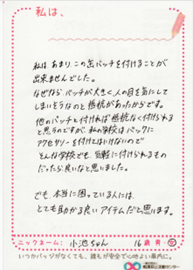 私は、
私は あまり この缶バッチを付けることが
出来ませんでした。
なぜなら バッチが大きく人の目を気にして
しまいそうなのと抵抗があったからです。
他のバッチと付ければ抵抗なく付けられる
と思うのですが、私の学校はバックに
アクセサリーを付けてはいけないので
そんな学校でも 気軽に付けられるもの
だったら良いなと思いました。
でも、本当に困っている人には、
とても助かる良いアイテムだと思います。
ニックネーム: 小池ちゃん 16歳 男
いつかバッジがなくても、誰もが安全で心地よい車内に。